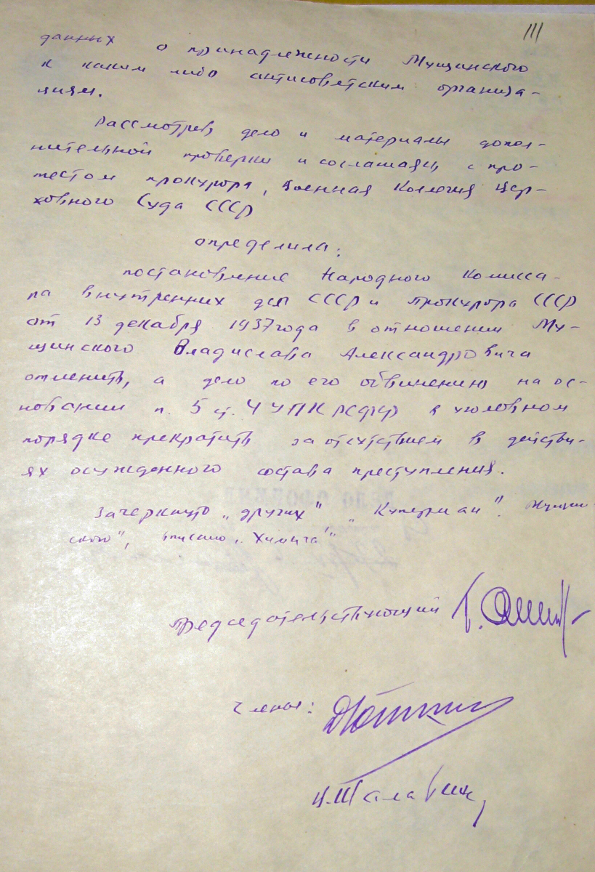 111
данных о принадлежности Мущинского
к каким либо антисоветским организа-
циям.
Рассмотрев дело и материалы допол-
нительной проверки и соглашаясь с про-
тестом прокурора, Военная Коллегия Вер-
ховного Суда СССР
определила:
постановление Народного Комисса-
ра внутренних дел СССР и Прокурора СССР
от 13 декабря 1937 года в отношении Му-
щинского Владислава Александровича
отменить, а дело по его обвинению на ос-
новании п. 5 ст. 4 УПК РСФСР в уголовном
порядке прекратить за отсутствием в действи-
ях осужденного состава преступления.
Зачеркнуто „других"
Председательствующий
Члены: